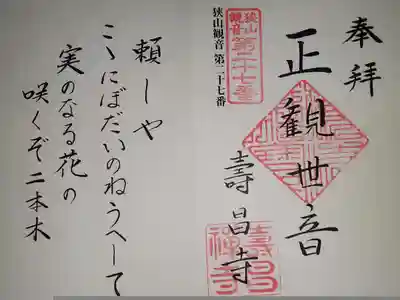 奉拝
正觀世音
壽昌寺
狭山
観音
第二十七番
狭山観音 第二十七番
頼しや
こゝにぼだいのねうへして
実のなる花の
咲くぞ二本木